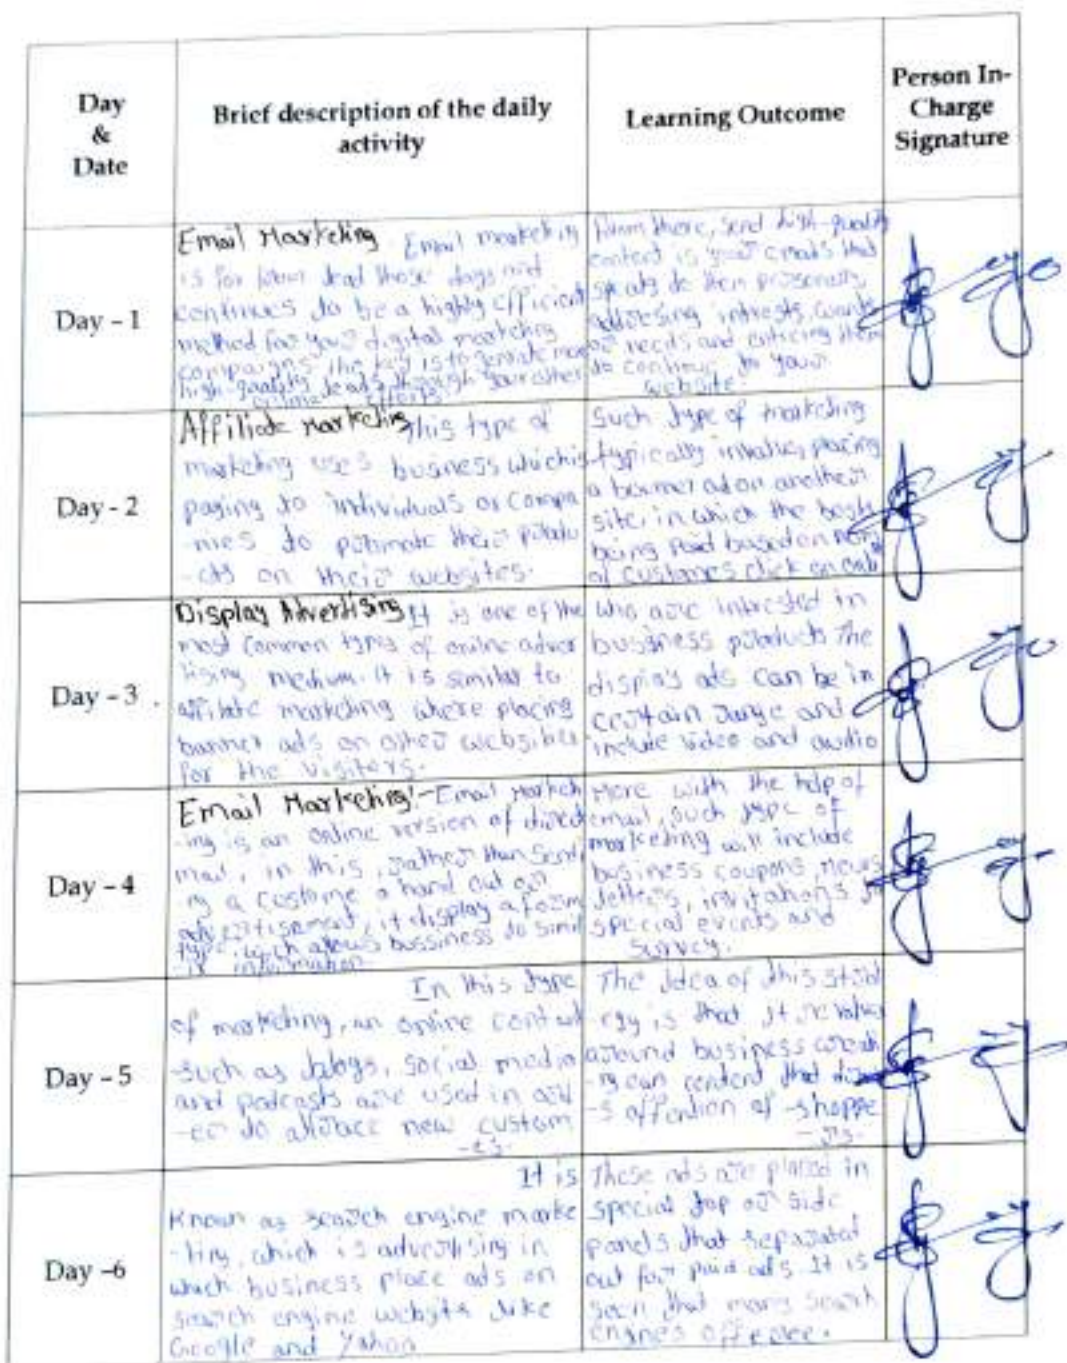 Day
&
Date
Brief description of the daily
activity
Learning Outcome
Person In-
Charge
Signature
Day - 1
Email Marketing Email marketing
is for from dead those days and
continues to be a highly efficient
method for your digital marketing
campaigns, the key is to generate more
high-quality leads through your other
online efforts.
From there, send high-quality
content is your emails that
speaks to them personally,
addressing intrests, wants
or needs and enticing them
to continue to your
website.
Day - 2
Affiliate marketing This type of
marketing uses business which is
paying to individuals or compa
-nies to promote their produ
-cts on their websites.
Such type of marketing
typically involves, placing
a banner ad on another
site, in which the
being paid based on
of customers click on
Day - 3
Display Advertising It is one of the
most common types of online adver
tising medium. It is similar to
affiliate marketing where placing
banner ads on other websites
for the visitors.
who are intrested in
bussiness products The
display ads can be in
certain range and
include video and audio
Day - 4
Email Marketing:- Email Market
-ing is an online version of direct
mail, in this, rather than send
ng a custome a hand out or
advertisment, it display a form
type, which allows bussiness to simil
-ar information
More with the help of
email, such type of
marketing will include
business coupons, news
letters, invitations to
special events and
survey.
Day - 5
In this type
of marketing, an online content
such as blogs, social media
and podcasts are used in ord
-er to attract new custom
-es.
The Idea of this strat
-egy is that it revolves
around business creati
-ng can content that
-s attention of shoppe
-rs.
Day -6
It is
Known as search engine marke
-ting, which is advertising in
which business place ads on
search engine website like
Google and Yahoo
These ads are placed in
special top or side
panels that separated
out for paid ads. It is
seen that many search
engines